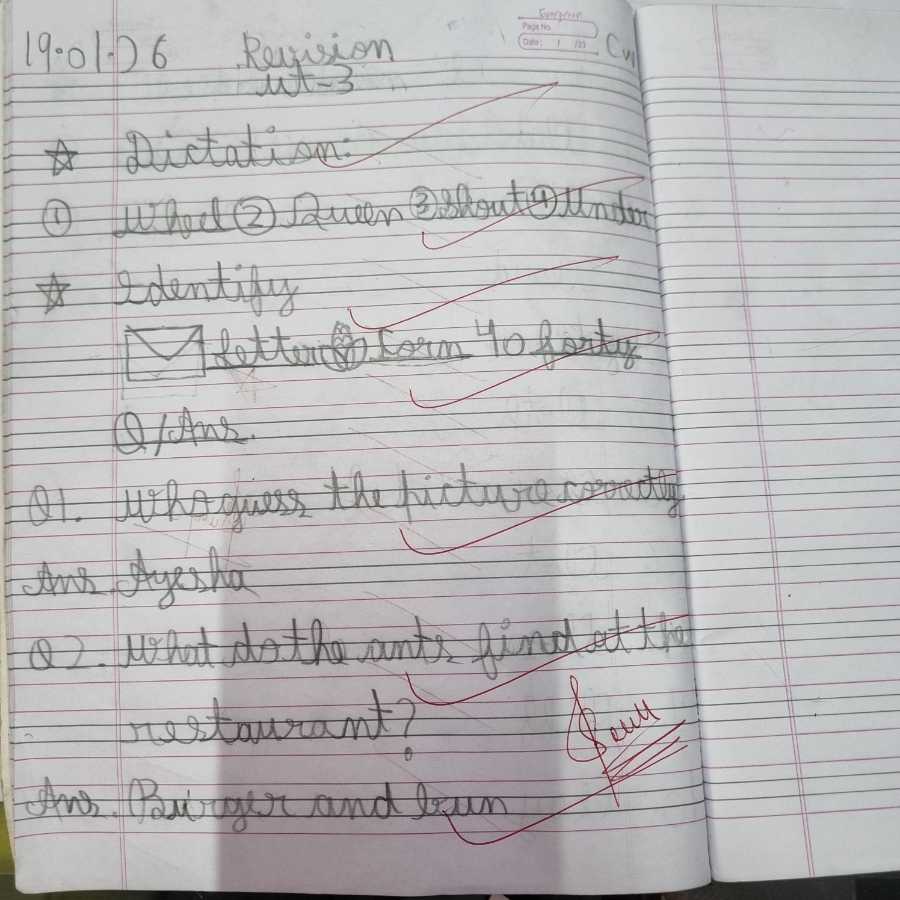 Evergreen
Page No.
Date: / /20
19.01.26 Revision C.W
UT-3
☆ Dictation:
① Wheel ② Queen ③ Shout ④ Under
☆ Identify
Letter Corn 40 forty
Q/Ans.
Q1. Who guess the picture correctly
Ans. Ayesha
Q2. What do the ants find at the
restaurant?
Ans. Burger and bun